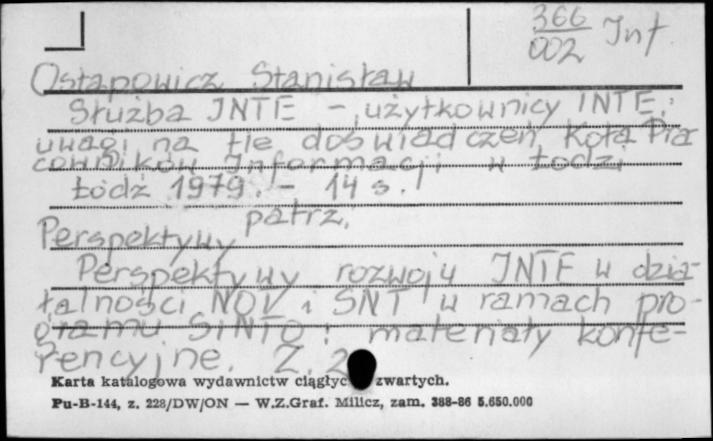 366
002 Inf.
Ostapowicz Stanisław
Służba INTE - użytkownicy INTE:
uwagi na tle doświadczeń Koła Pra
cowników Informacji w Łodzi
Łódź 1979. - 14 s.
patrz.
Perspektywy
Perspektywy rozwoju INTE w dzia-
łalności NOV i SNT w ramach pro-
gramu SINTO: materiały konfe-
rencyjne. Z. 2
Karta katalogowa wydawnictw ciągłyc zwartych.
Pu-B-144, z. 228/DW/ON — W.Z.Graf. Milicz, zam. 388-86 5.650.000